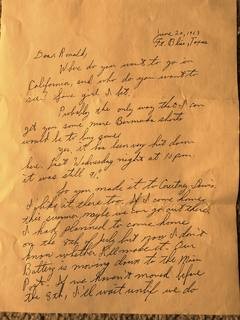 June 20, 1963
Ft. Bliss, Texas
Dear Ronald,
Where do you want to go in
California, and who do you want to
see? Some girl I bet.
Probably the only way that I can
get you some more Bermuda shorts
would be to buy some.
Yes, it has been very hot down
here. Last Wednesday night at 11 p.m.
it was still 91°
So you made it to
I like it there too. If I come home
this summer, maybe we can go out there.
I had planned to come home
on the 8th of July but now I don't
know whether I'll make it. Our
Battery is moving down to the Main
Post. If we haven't moved before
the 8th, I'll wait until we do